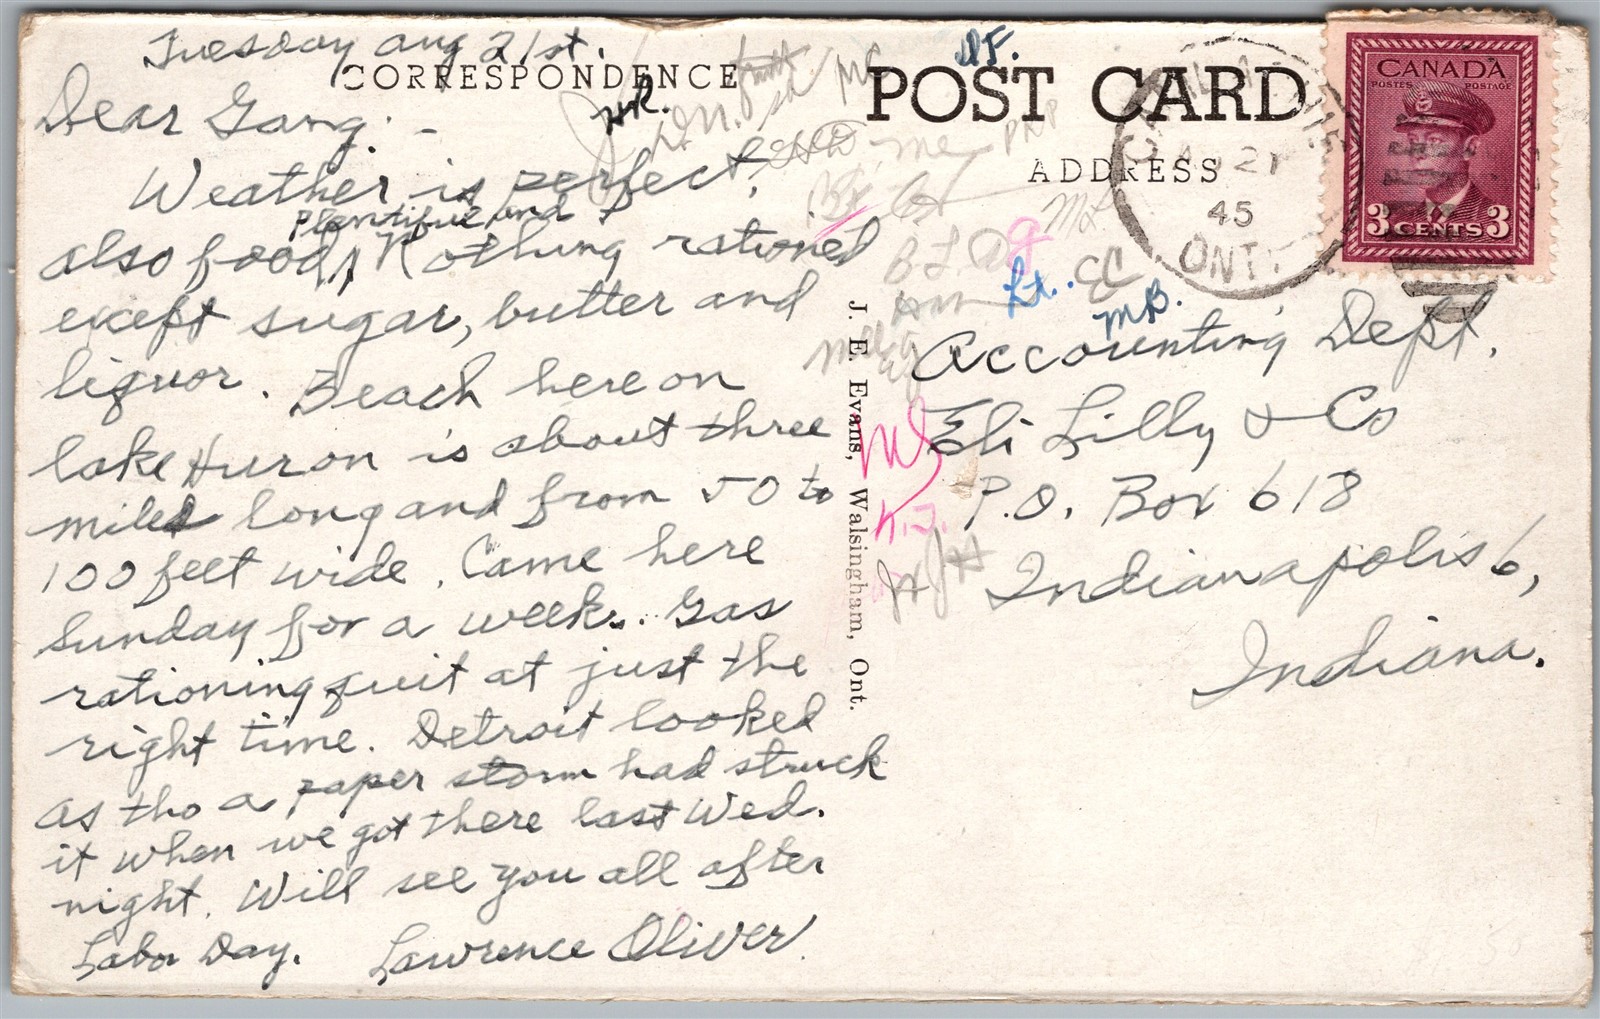 Tuesday Aug 21st.
CORRESPONDENCE
Dear Gang: -
Weather is perfect,
Plentiful and
also food, Nothing rationed
except sugar, butter and
liquor. Beach here on
lake Huron is about three
miles long and from 50 to
100 feet wide. Came here
Sunday for a week. Gas
rationing quit at just the
right time. Detroit looked
as tho a paper storm had struck
it when we got there last Wed.
night. Will see you all after
Labor Day. Lawrence Oliver.
HR.
J. E. Evans, Walsingham, Ont.
POST CARD
ADDRESS
CANADA
POSTES POSTAGE
3 CENTS 3
21
45
ONT
Lt.
EC
MB.
Accounting Dept.
Eli Lilly & Co
P.O. Box 618
Indianapolis 6,
Indiana.